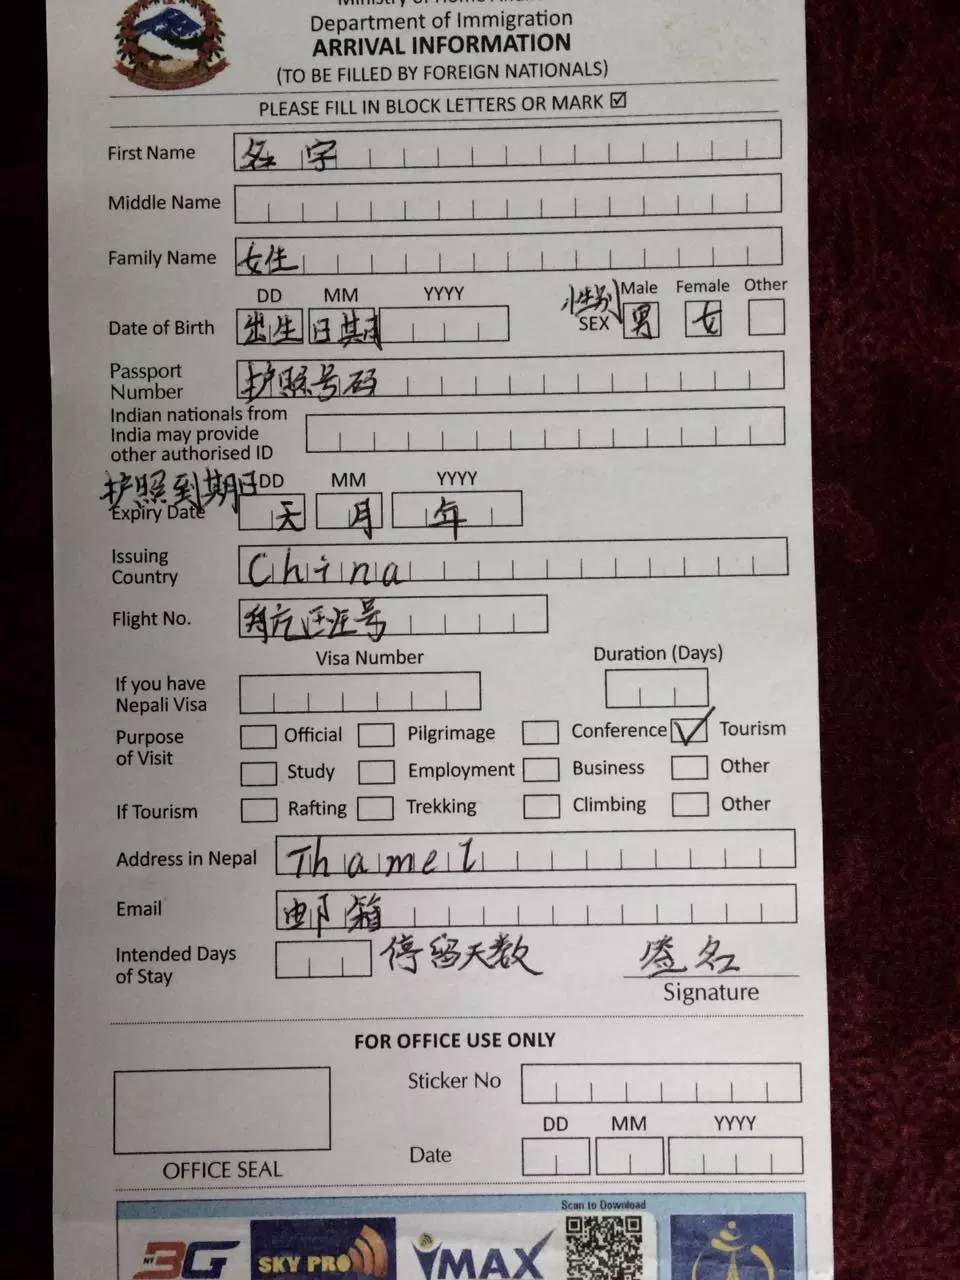 Department of Immigration
ARRIVAL INFORMATION
(TO BE FILLED BY FOREIGN NATIONALS)
PLEASE FILL IN BLOCK LETTERS OR MARK ☑
First Name 名字
Middle Name
Family Name 女生
DD MM YYYY Male Female Other
Date of Birth 出生日期 性别 SEX 男 女
Passport Number 护照号码
Indian nationals from
India may provide
other authorised ID
护照到期日 DD MM YYYY
Expiry Date 天 月 年
Issuing Country China
Flight No. 号
Visa Number Duration (Days)
If you have
Nepali Visa
Purpose of Visit Official Pilgrimage Conference ✓ Tourism
Study Employment Business Other
If Tourism Rafting Trekking Climbing Other
Address in Nepal Thamel
Email 邮箱
Intended Days of Stay 停留天数 签名
Signature
FOR OFFICE USE ONLY
Sticker No
DD MM YYYY
Date
OFFICE SEAL
Scan to Download
NT 3G SKY PRO YMAX